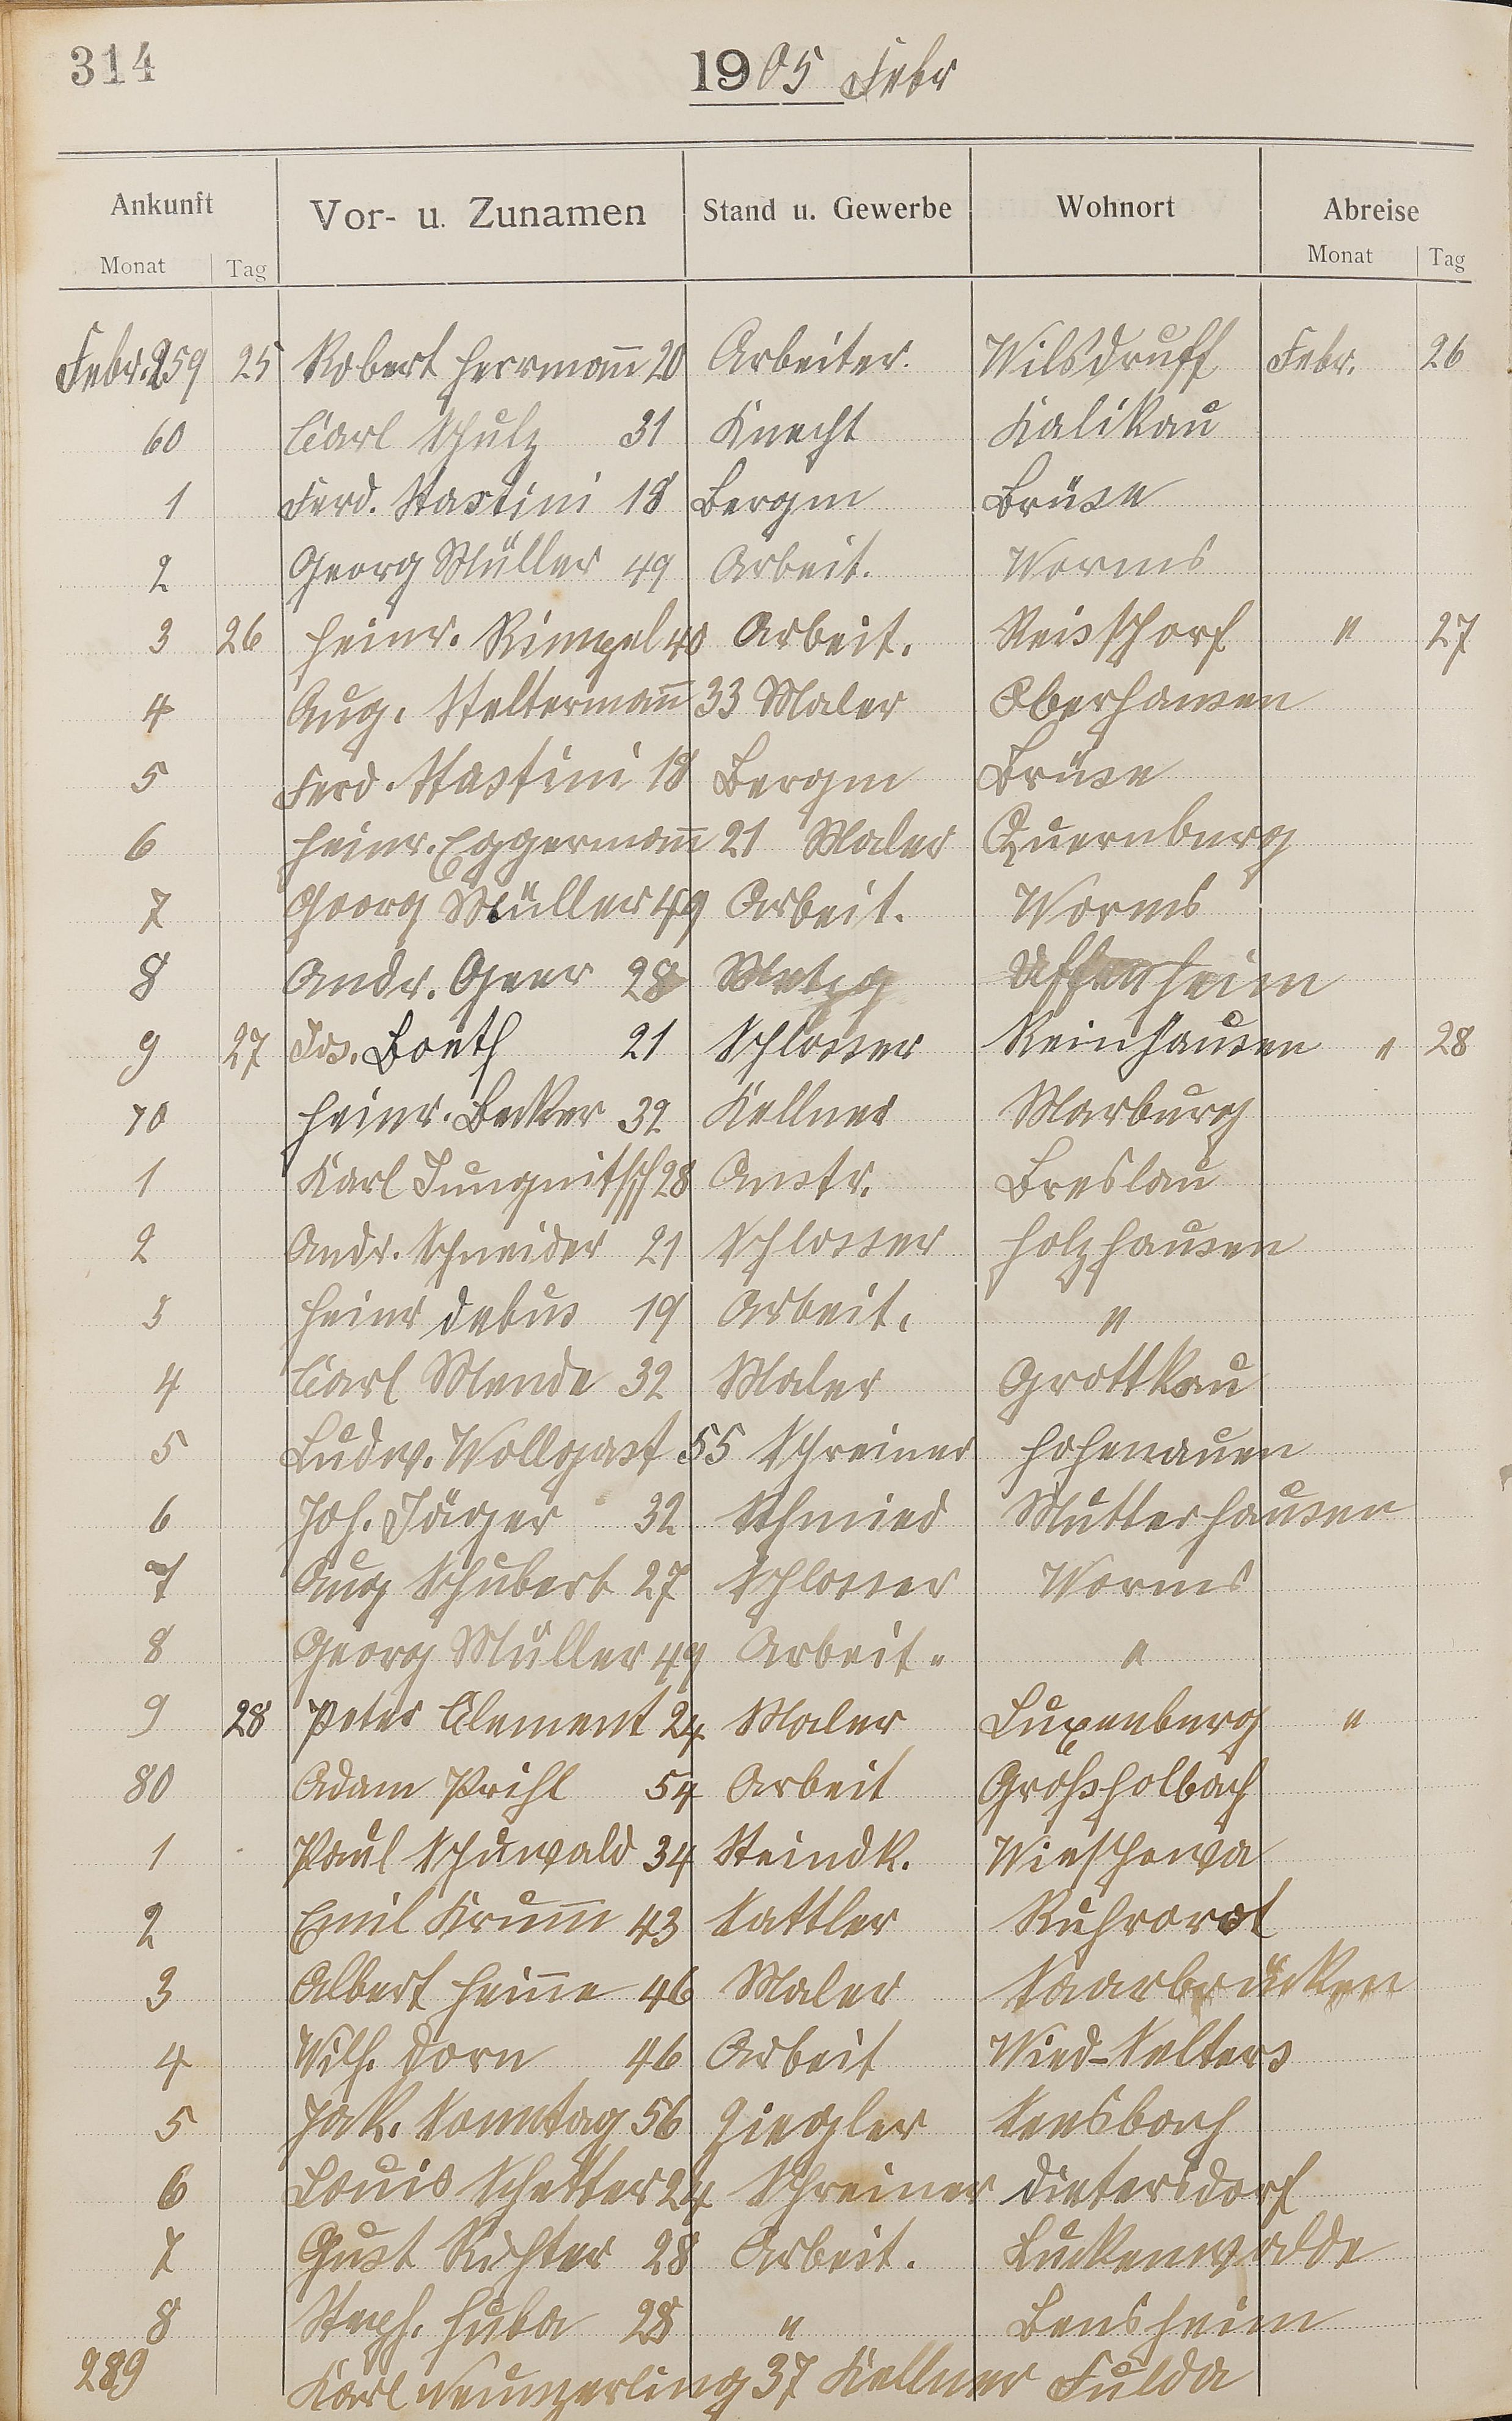 314
1905 Febr
Ankunft Vor- u. Zunamen Stand u. Gewerbe Wohnort Abreise
Monat Tag Monat Tag
Febr. 259 25 Robert Herrmann 20 Arbeiter. Wilsdruff Febr. 26
60 Carl Schulz 31 Knecht Kalikau
1 Ferd. Stastini 18 Bergm Brüxe
2 Georg Müller 49 Arbeit. Worms
3 26 Heinr. Rimpel 40 Arbeit. Reisschorf " 27
4 Aug. Steltermann 33 Maler Oberhausen
5 Ferd. Stastini 18 Bergm Brüxe
6 Heinr. Eggermann 21 Maler Quernburg
7 Georg Müller 49 Arbeit. Worms
8 Andr. Geer 28 Metzg Uffenheim
9 27 Jos. Boeth 21 Schlosser Reinhausen " 28
70 Heinr. Becker 32 Kellner Marburg
1 Karl Jungnitsch 28 Anstr. Breslau
2 Andr. Schneider 21 Schlosser Holzhausen
3 Heinr Debus 19 Arbeit. "
4 Carl Mende 32 Maler Grottkau
5 Ludw. Wollgast 55 Schreiner Hohenauen
6 Joh. Jäger 32 Schmied Mutterhausen
7 Aug Schubert 27 Schlosser Worms
8 Georg Müller 49 Arbeit. "
9 28 Peter Clement 24 Maler Luxenburg "
80 Adam Prihl 54 Arbeit Grossholbach
1 Paul Schuwald 34 Steindk. Wieschowa
2 Emil Krumm 43 Sattler Ruhrorot
3 Albert Heinne 46 Maler Saarbrücken
4 Wilh. Dorn 46 Arbeit Wied-Selters
5 Jak. Sonntag 56 Ziegler Sensbach
6 Louis Schetter 24 Schreiner Dietersdorf
7 Gust Richter 28 Arbeit. Luckenwalde
8 Steph. Huba 28 " Bensheim
289 Karl Neumzerling 37 Kellner Fulda